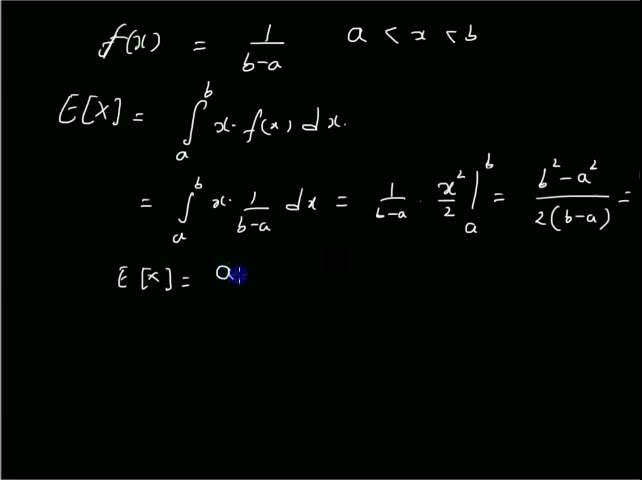 f(x) = 1/(b-a)   a < x < b
E[X] = ∫_a^b x · f(x) dx.
= ∫_a^b x · 1/(b-a) dx = 1/(b-a) · x²/2 |_a^b = (b² - a²)/(2(b-a)) =
E[x] = a